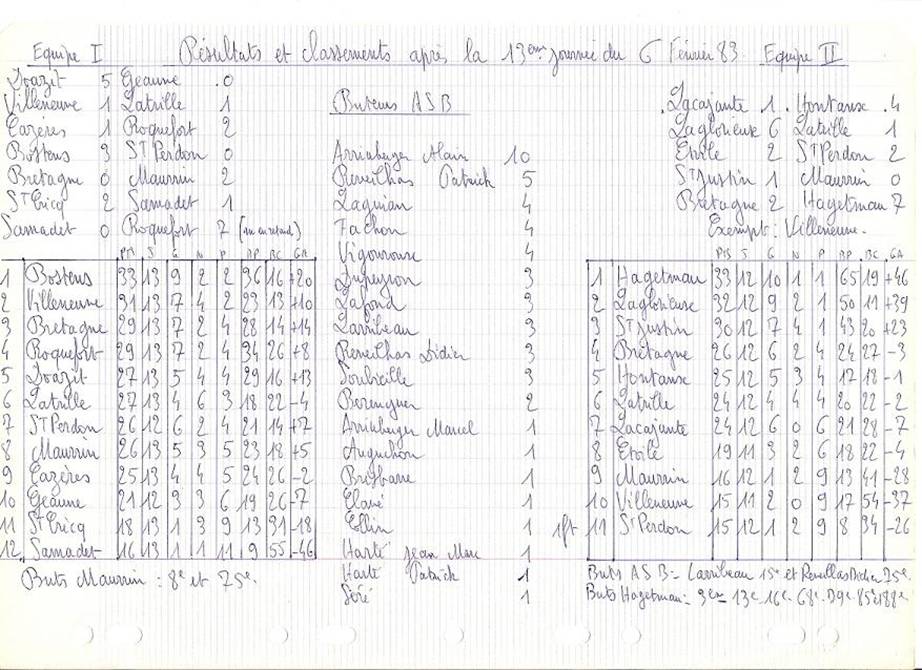 Equipe I Résultats et classements après la 13ème journée du 6 Février 83 Equipe II
Doazit 5 Geaune 0
Villeneuve 1 Latrille 1
Cazères 1 Roquefort 2
Bostens 3 St Perdon 0
Bretagne 0 Maurrin 2
St Cricq 2 Samadet 1
Samadet 0 Roquefort 7
PTS J G N P BP BC GA
1 Bostens 33 13 9 2 2 36 16 +20
2 Villeneuve 31 13 7 4 2 23 13 +10
3 Bretagne 29 13 7 2 4 28 14 +14
4 Roquefort 29 13 7 2 4 34 26 +8
5 Doazit 27 13 5 4 4 29 16 +13
6 Latrille 27 13 4 6 3 18 22 -4
7 St Perdon 26 12 6 2 4 21 14 +7
8 Maurrin 26 13 5 3 5 23 18 +5
9 Cazères 25 13 4 4 5 24 26 -2
10 Geaune 21 12 3 3 6 19 26 -7
11 St Cricq 18 13 1 3 9 13 31 -18
12 Samadet 16 13 1 1 11 9 55 -46
Buts Maurrin : 8e et 75e.
Buteurs ASB
Arrihuberger Alain 10
Reveilhas Patrick 5
Laguian 4
Fachon 4
Vigouroux 4
Dupeyron 3
Lafond 3
Larribeau 3
Reveilhas Didier 3
Soubieille 3
Berenguer 2
Marcel 1
Auguchon 1
Brisbarre 1
Clavé 1
Ellin 1
Harté Jean Marc 1
Harté Patrick 1
Séré 1
Lacajunte 1 Hontanx 4
Laglorieuse 6 Latrille 1
Etoile 2 St Perdon 2
St Justin 1 Maurrin 0
Bretagne 2 Hagetman 7
Exempt : Villeneuve.
PTS J G N P BP BC GA
1 Hagetman 33 12 10 1 1 65 19 +46
2 Laglorieuse 32 12 9 2 1 50 11 +39
3 St Justin 30 12 7 4 1 43 20 +23
4 Bretagne 26 12 6 2 4 24 27 -3
5 Hontanx 25 12 5 3 4 17 18 -1
6 Latrille 24 12 4 4 4 20 22 -2
7 Lacajunte 24 12 6 0 6 21 28 -7
8 Etoile 19 11 3 2 6 18 22 -4
9 Maurrin 16 12 1 2 9 13 41 -28
10 Villeneuve 15 11 2 0 9 17 54 -37
1pt 11 St Perdon 15 12 1 2 9 8 34 -26
Buts ASB - Larribeau 15e et Reveilhas Didier 75e.
Buts Hagetman - 9em 13e 16e 68e 85e 88e